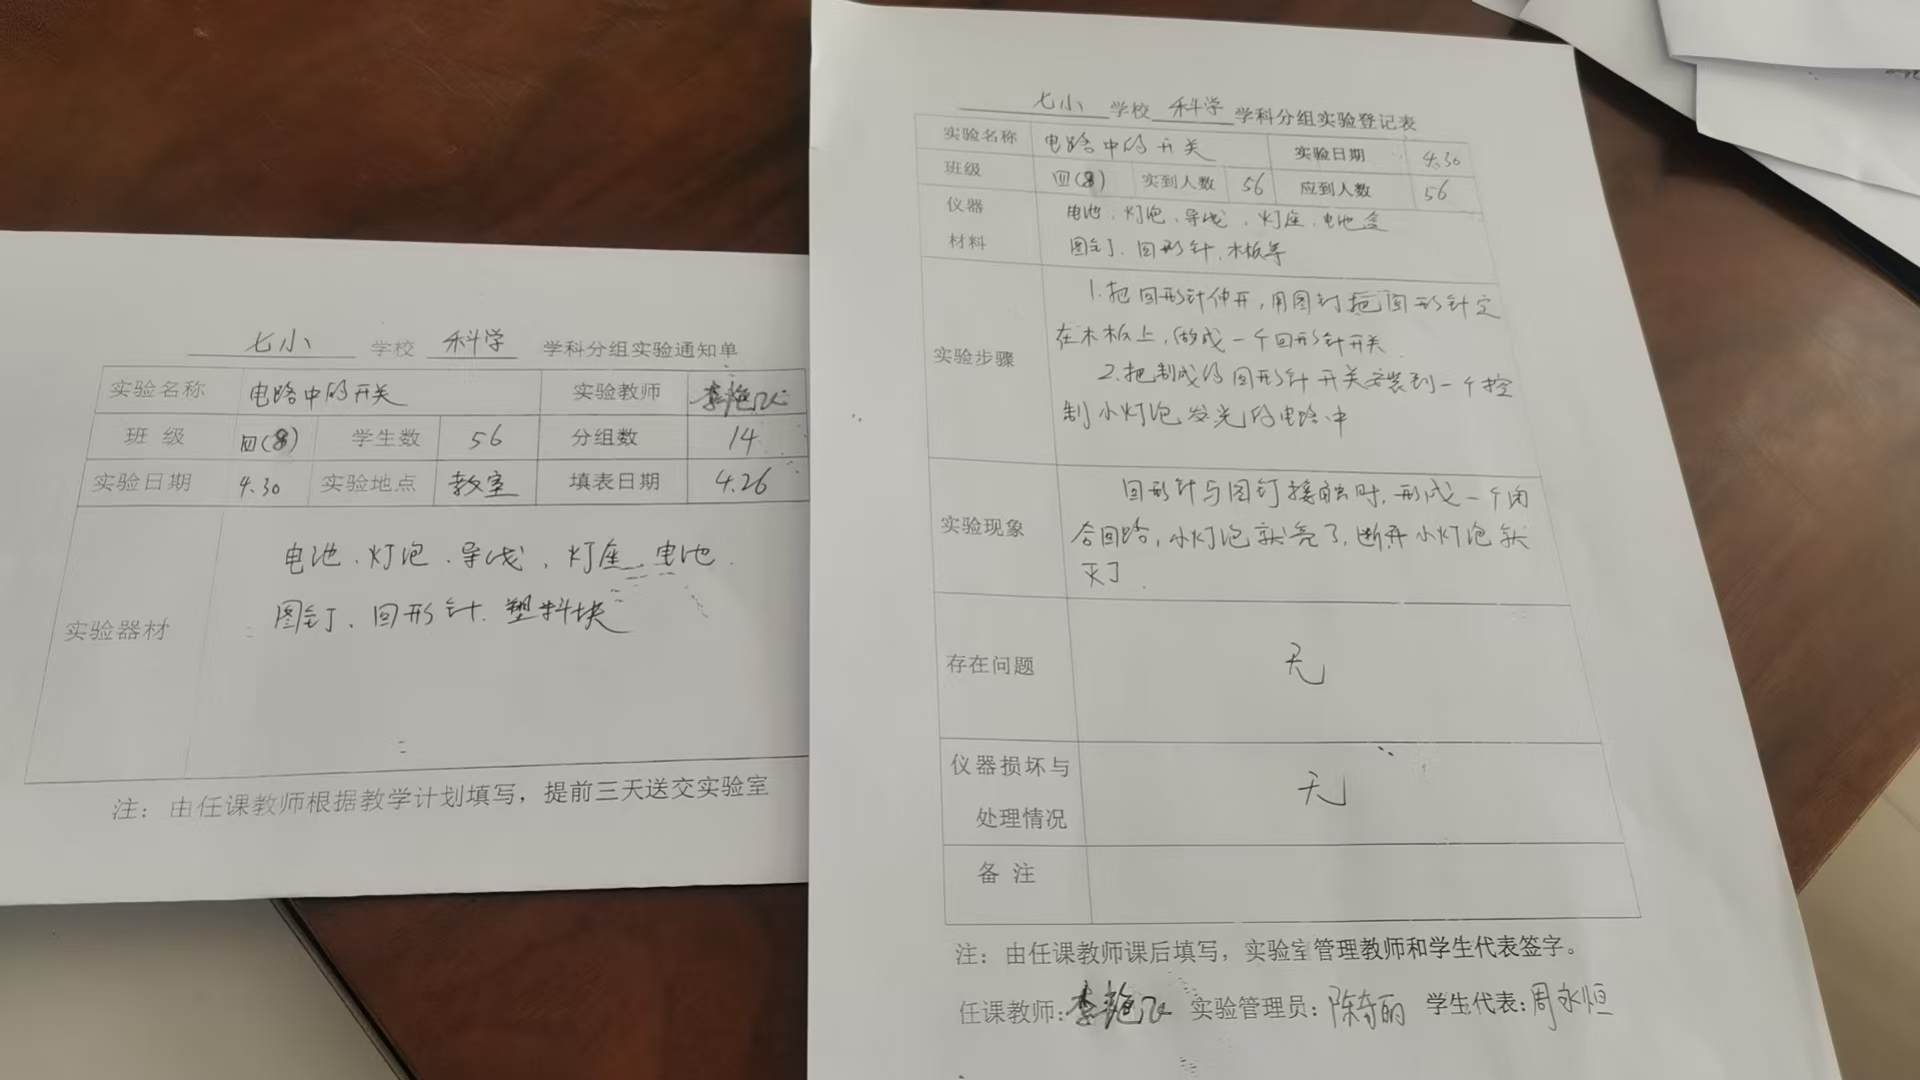 七小 学校 科学 学科分组实验通知单
实验名称 电路中的开关 实验教师 李艳
班级 四(8) 学生数 56 分组数 14
实验日期 4.30 实验地点 教室 填表日期 4.26
实验器材
电池、灯泡、导线、灯座、电池
图钉、回形针、塑料块
注：由任课教师根据教学计划填写，提前三天送交实验室
七小 学校 科学 学科分组实验登记表
实验名称 电路中的开关 实验日期 4.30
班级 四(8) 实到人数 56 应到人数 56
仪器材料
电池、灯泡、导线、灯座、电池盒
图钉、回形针、木板等
实验步骤
1.把回形针伸开，用图钉把回形针定
在木板上，做成一个回形针开关.
2.把制成的回形针开关安装到一个控
制小灯泡发光的电路中
实验现象
回形针与图钉接触时，形成一个闭
合回路，小灯泡就亮了，断开小灯泡就
灭了.
存在问题 无
仪器损坏与处理情况 无
备注
注：由任课教师课后填写，实验室管理教师和学生代表签字。
任课教师：李艳 实验管理员：陈奇丽 学生代表：周永恒